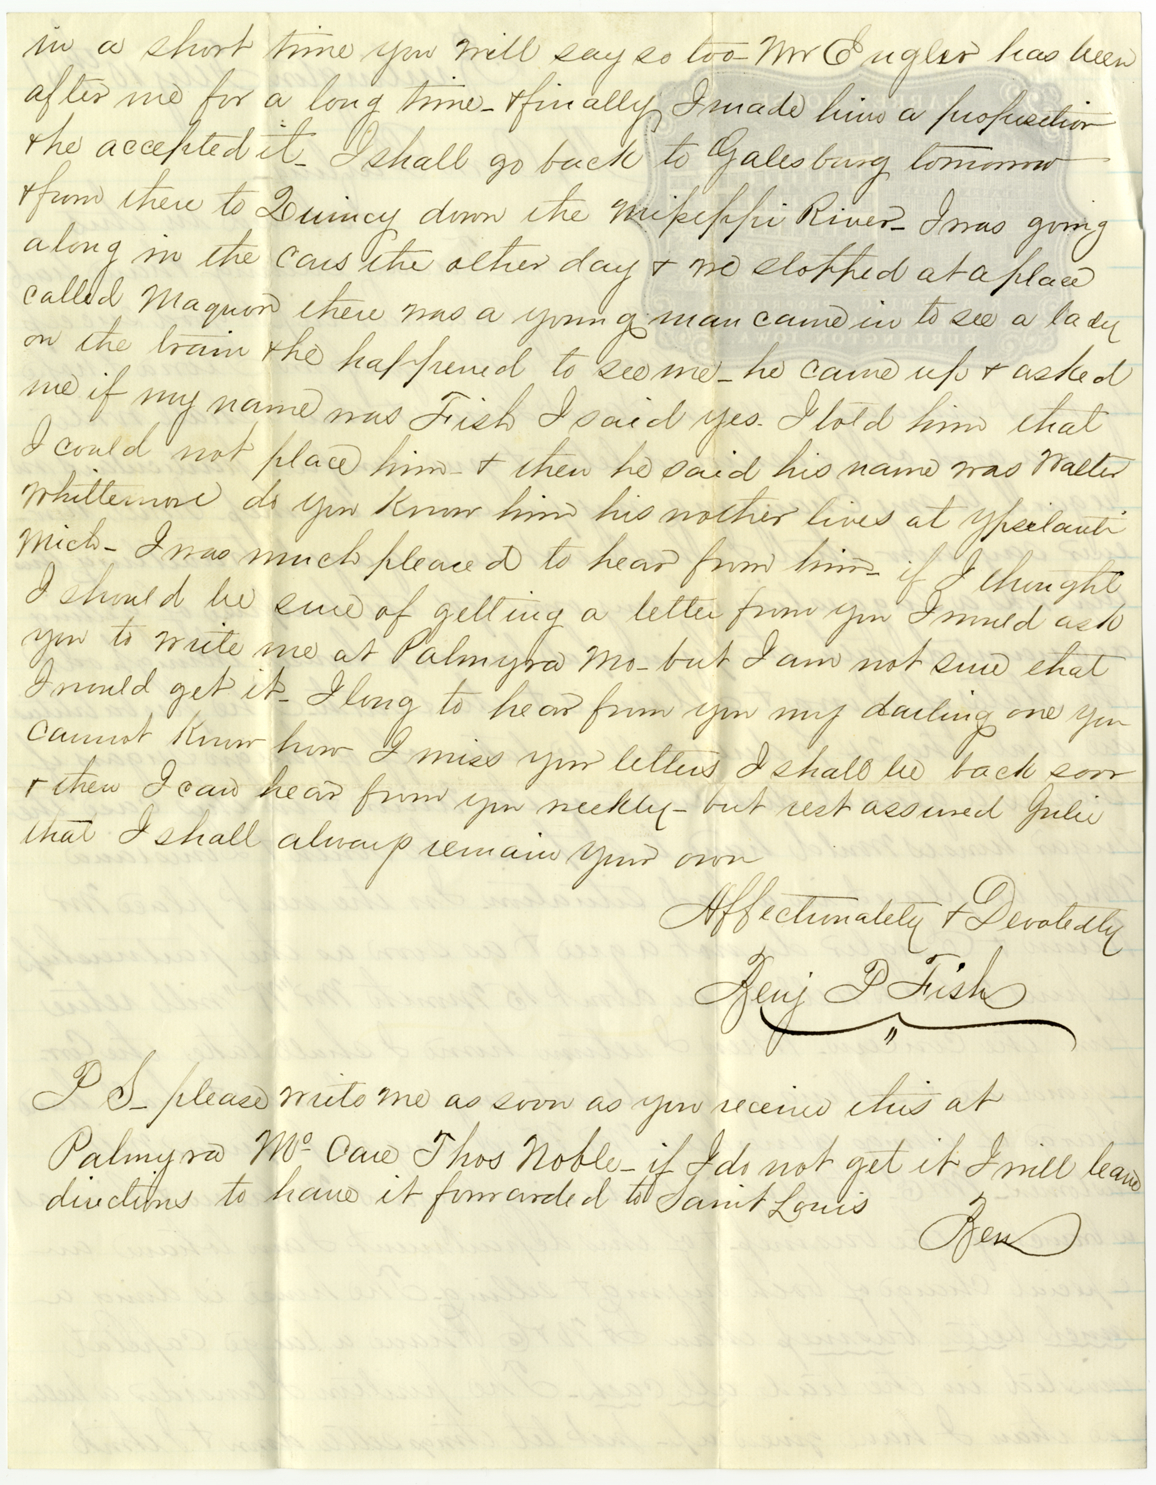 in a short time you will say so too - Mr Engler has been
after me for a long time - & finally I made him a proposition
& he accepted it - I shall go back to Galesburg tomorrow
& from there to Quincy down the Mississippi River - I was going
along in the cars the other day & we stopped at a place
called Maquon there was a young man came in to see a lady
on the train & he happened to see me - he came up & asked
me if my name was Fish I said yes - I told him that
I could not place him - & then he said his name was Walter
Whittemore do you know him his mother lives at Ypsilanti
Mich - I was much pleased to hear from him - if I thought
I should be sure of getting a letter from you I would ask
you to write me at Palmyra Mo - but I am not sure that
I would get it - I long to hear from you my darling one you
cannot know how I miss your letters I shall be back soon
& then I can hear from you weekly - but rest assured Julie
that I shall always remain your own
Affectionately & Devotedly
Benj P Fish
P S - please write me as soon as you receive this at
Palmyra Mo Care Thos Noble - if I do not get it I will leave
directions to have it forwarded to Saint Louis
Ben